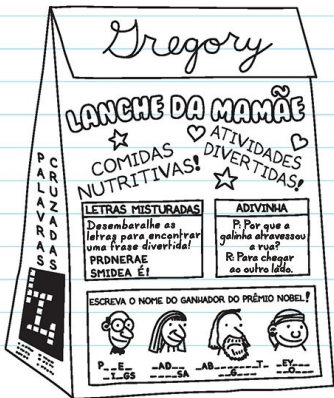 Gregory
LANCHE DA MAMÃE
COMIDAS
NUTRITIVAS!
ATIVIDADES
DIVERTIDAS!
PALAVRAS
CRUZADAS
LETRAS MISTURADAS
Desembaralhe as
letras para encontrar
uma frase divertida!
PRDNERAE
SMIDEA É!
ADIVINHA
P: Por que a
galinha atravessou
a rua?
R: Para chegar
ao outro lado.
ESCREVA O NOME DO GANHADOR DO PRÊMIO NOBEL!
P__E_
_I_GS
_AD__
____SA
_AB_______T_
__G___
_EY___
__O___